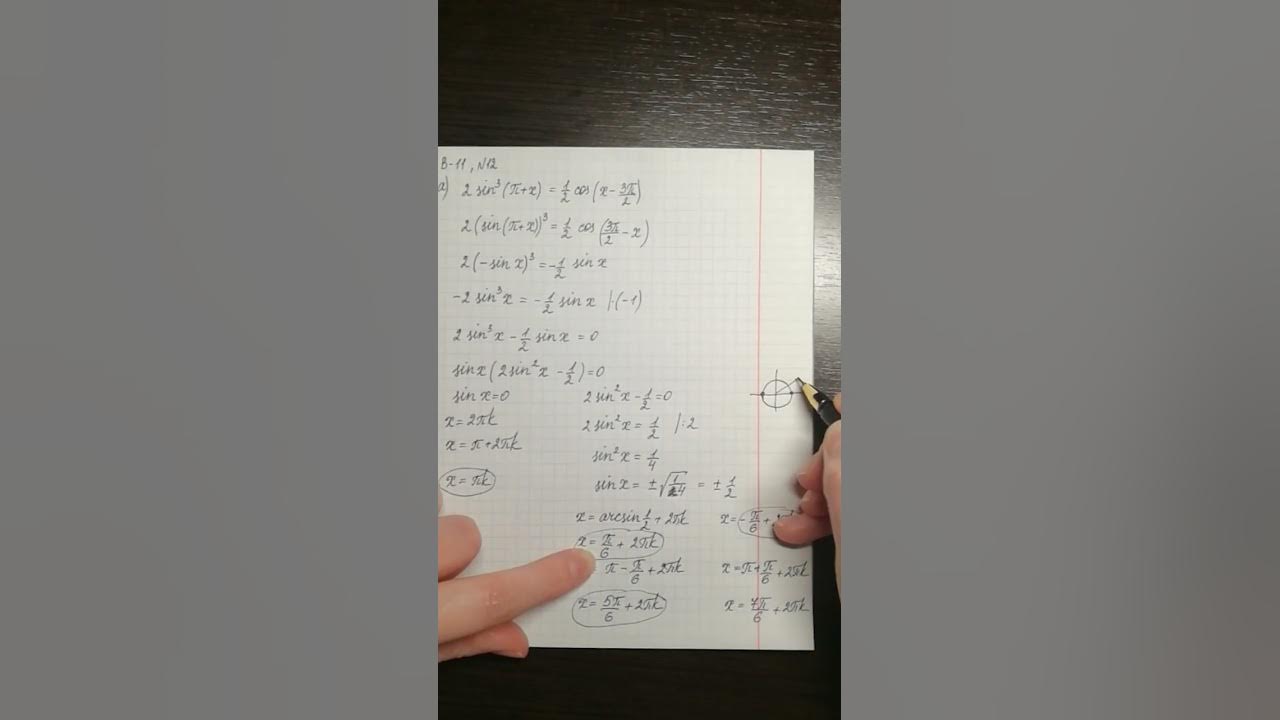 В-11, №12
а) 2 sin³(π+x) = 1/2 cos(x - 3π/2)
2(sin(π+x))³ = 1/2 cos(3π/2 - x)
2(-sin x)³ = -1/2 sin x
-2 sin³x = -1/2 sin x |:(-1)
2 sin³x - 1/2 sin x = 0
sin x(2 sin²x - 1/2) = 0
sin x = 0
x = 2πk
x = π + 2πk
x = πk
2 sin²x - 1/2 = 0
2 sin²x = 1/2 |:2
sin²x = 1/4
sin x = ±√1/4 = ±1/2
x = arcsin 1/2 + 2πk
x = π/6 + 2πk
π - π/6 + 2πk
x = 5π/6 + 2πk
x = -π/6 +
x = π + π/6 + 2πk
x = 7π/6 + 2πk